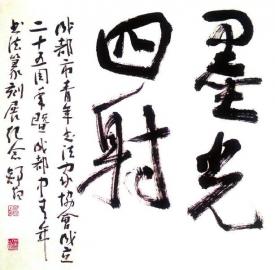 墨光
四射
成都市青年书法家协會成立
二十五周年暨成都市青年
书法篆刻展纪念